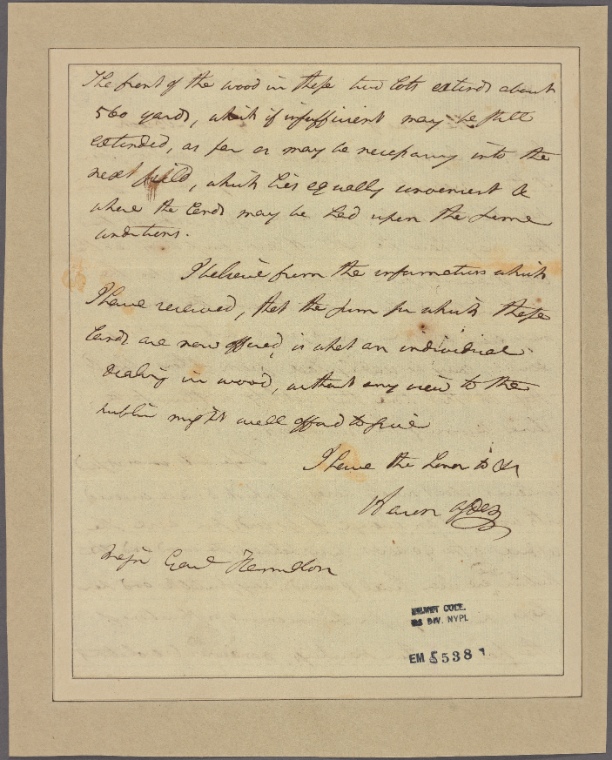 The front of the wood in these two lots extends about
560 yards, which if insufficient may be still
extended, as far as may be necessary into the
next field, which lies equally convenient &
where the Lands may be had upon the same
conditions.
I believe from the information which
I have received, that the sum for which these
Lands are now offered, is what an individual
dealing in wood, without any view to the
public might well afford to give
I have the honor to &c
Aaron Ogden
Major Genl Hamilton
EMMET COLL.
MS DIV. NYPL
EM 5538